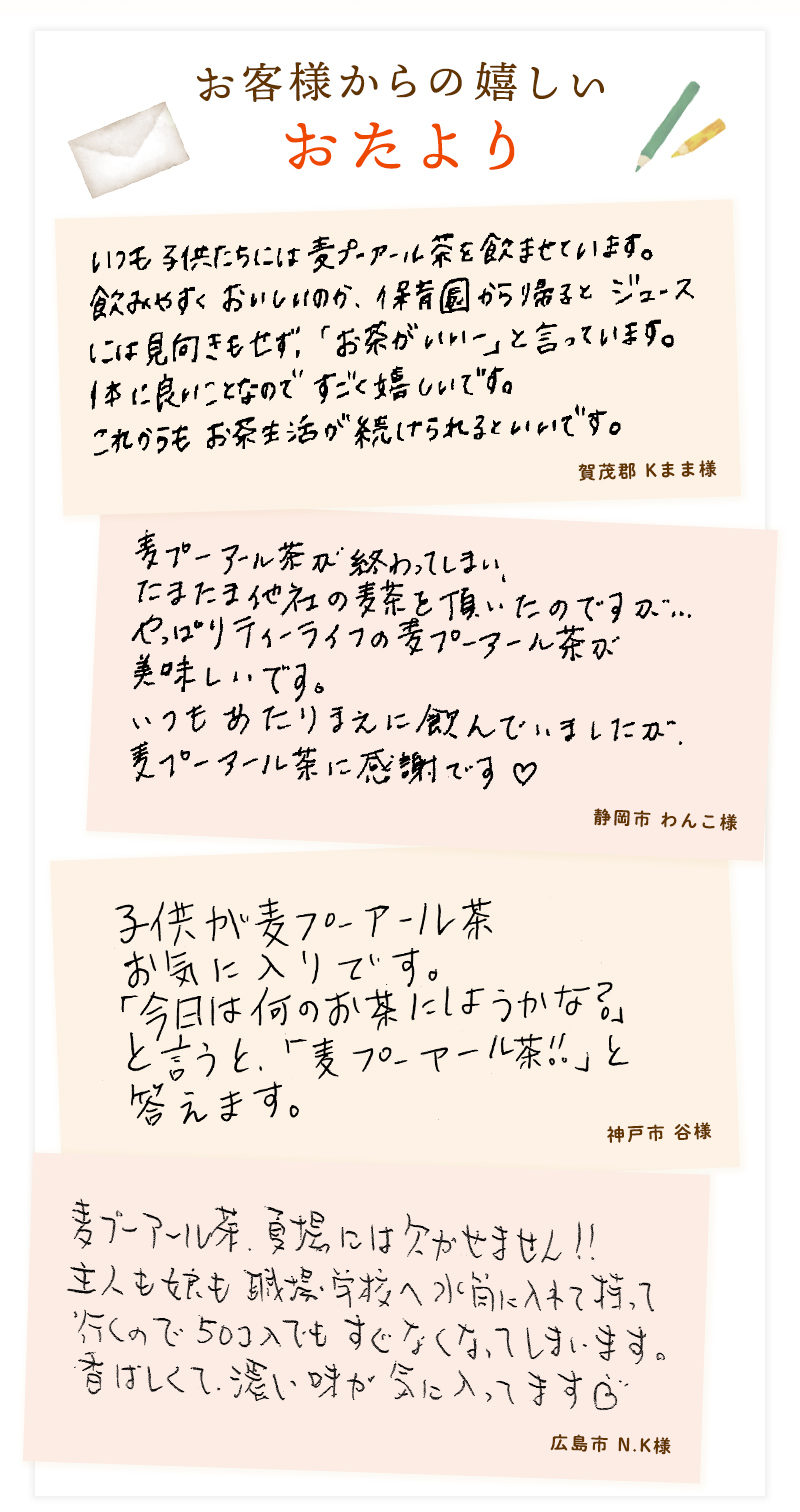 お客様からの嬉しい
おたより
いつも子供たちには麦プーアール茶を飲ませています。
飲みやすくおいしいのか、保育園から帰ると ジュース
には見向きもせず、「お茶がいいー」と言っています。
体に良いことなので すごく嬉しいです。
これからも お茶生活が続けられるといいです。
賀茂郡 Kまま様
麦プーアール茶が終わってしまい、
たまたま他社の麦茶を頂いたのですが…
やっぱりティーライフの麦プーアール茶が
美味しいです。
いつもあたりまえに飲んでいましたが、
麦プーアール茶に感謝です♡
静岡市 わんこ様
子供が麦プーアール茶
お気に入りです。
「今日は何のお茶にしようかな?」
と言うと、「麦プーアール茶!!」と
答えます。
神戸市 谷様
麦プーアール茶、夏場には欠かせません!!
主人も娘も職場・学校へ水筒に入れて持って
行くので50コ入でもすぐなくなってしまいます。
香ばしくて、濃い味が気に入ってます
広島市 N.K様